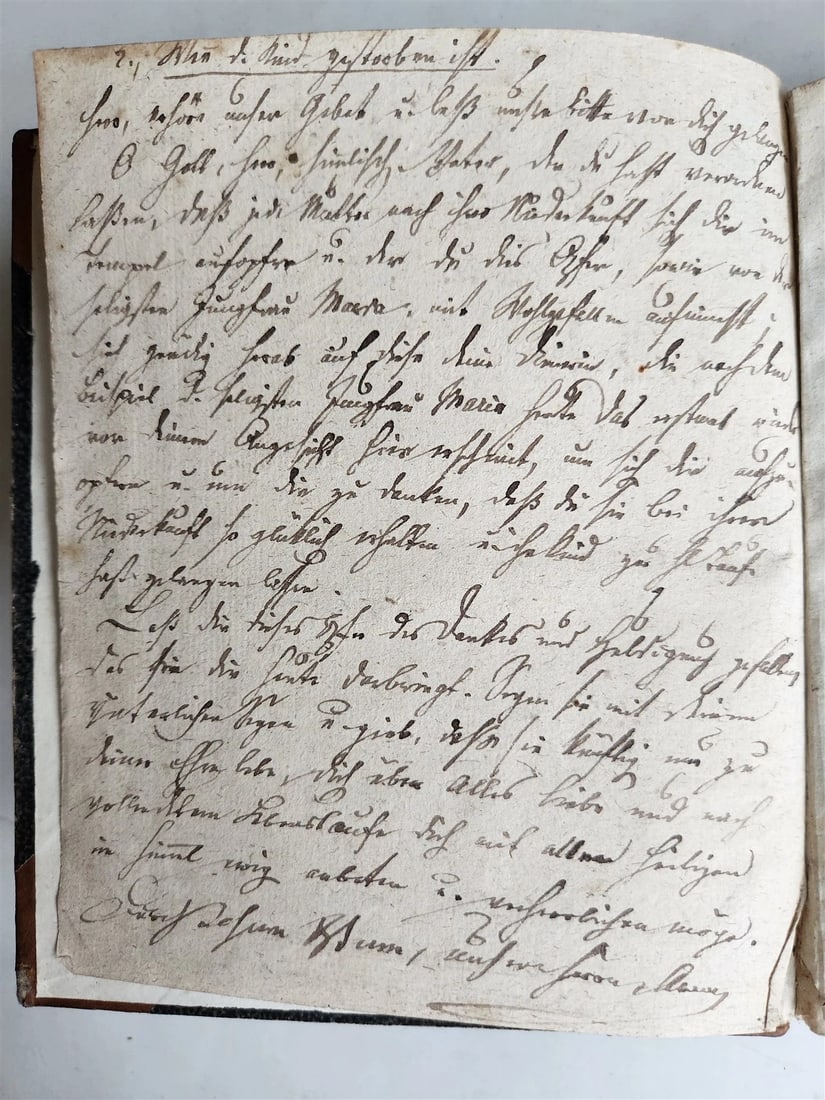 2., Wen d. Kind gestorben ist.
Herr, erhöre unser Gebet u. laß unsre Bitte vor dich gelangen
O Gott, Herr, himlisch. Vater, der du hast verordnen
laßen, daß jede Mutter nach ihrer Niederkunft sich dir im
Tempel aufopfre u. der du dies Opfer, sowie von der
seligsten Jungfrau Maria, mit Wohlgefallen aufnimst;
sieh gnädig herab auf diese deine Dienerin, die nach dem
Beispiel d. seligsten Jungfrau Maria heute das erstmal wieder
vor deinem Angesicht hier erscheint, um sich dir aufzu-
opfern u. um dir zu danken, daß du sie bei ihrer
Niederkunft so glüklich erhalten u. ihr Kind zur hl. Taufe
hast gelangen laßen.
Laß dir dieses Opfer des Dankes und Huldigung gefallen,
das sie dir heute darbringt. Segne sie mit deinem
Vaterlichen Segen u. gieb, daß sie künftig nur zu
deiner Ehre lebe, dich über Alles liebe und nach
vollendetem Lebenslaufe dich mit allen Heiligen
im Himmel ewig anbeten u. verherrlichen möge.
Durch Jesum Xstum, unsern Herrn. Amen